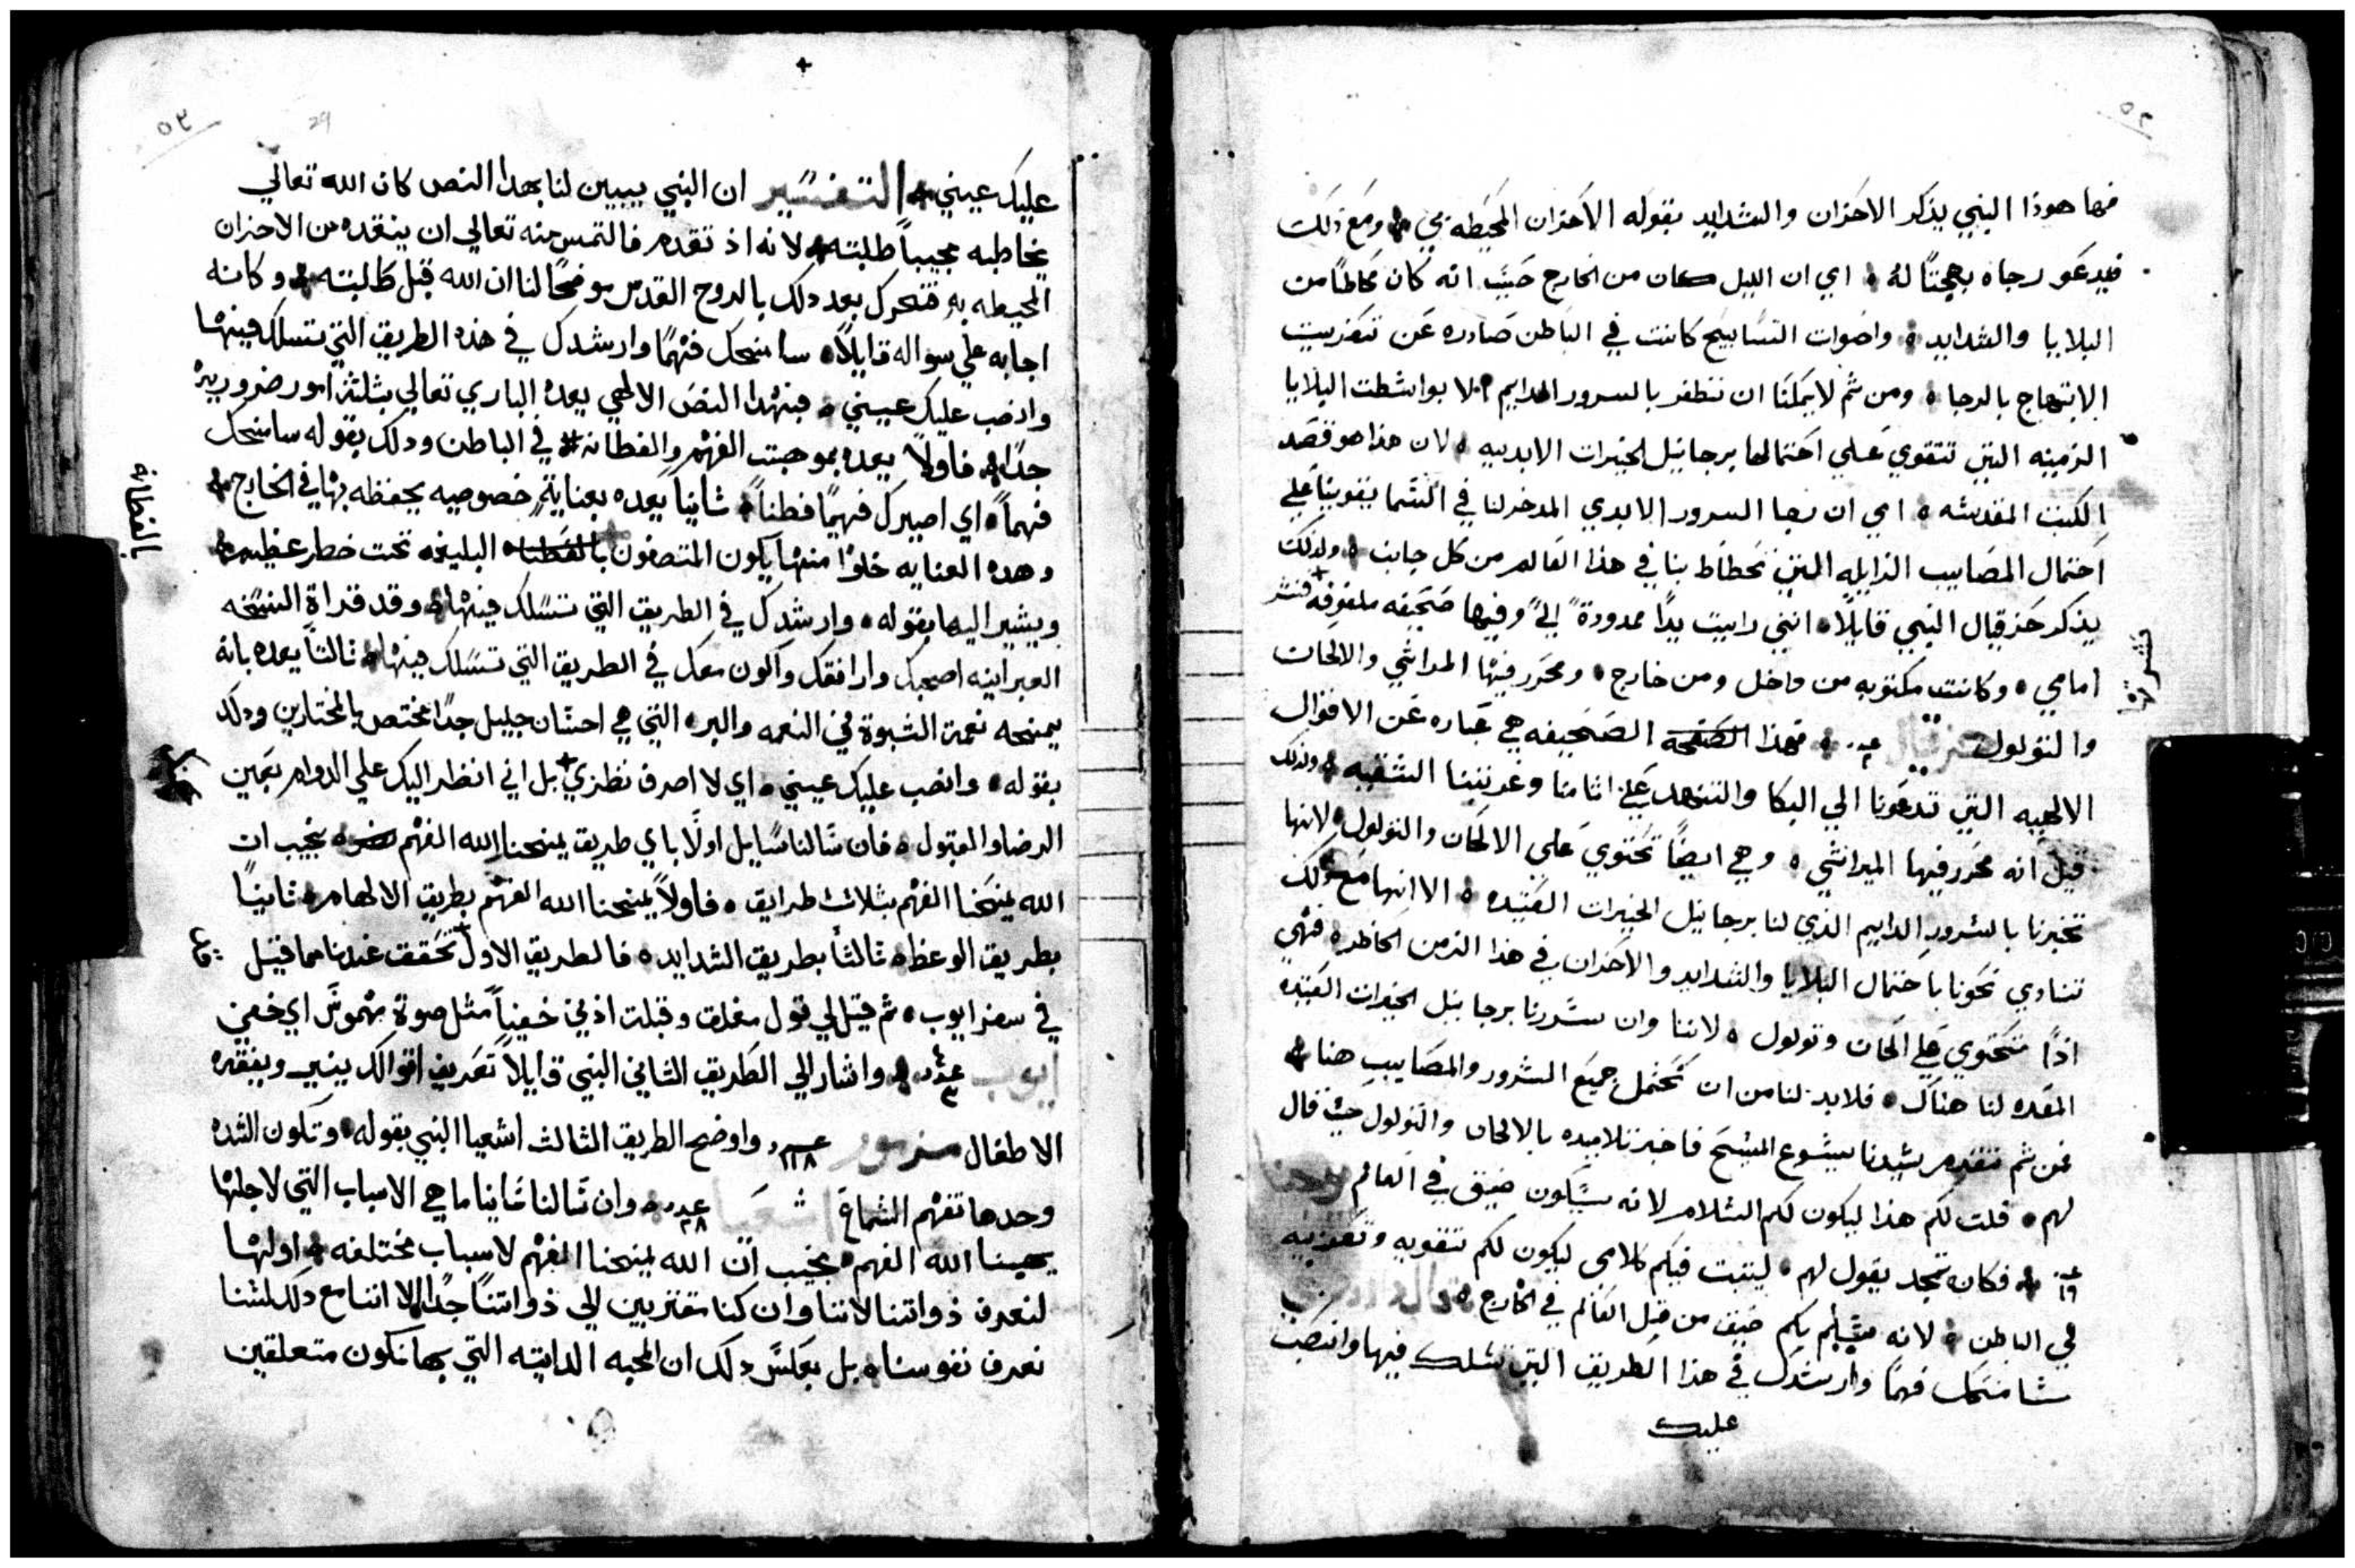 ٥٢
فها هوذا النبي يذكر الاحزان والشدايد بقوله الاحزان المحيطه بي ومع ذلك
فيدعو رجاه بهجتًا له اي ان الليل كان من الخارج حيث انه كان محاطًا من
البلايا والشدايد واصوات التسابيح كانت في الباطن صادره عن تعزيت
الابتهاج بالرجا ومن ثم لا يمكنا ان نظفر بالسرور الدايم الا بواسطت البلايا
الزمنيه التي نتقوي علي احتمالها برجا نيل الخيرات الابديه لان هذا هو قصد
الكتب المقدسه اي ان رجا السرور الابدي المدخر لنا في السما يقوينا علي
احتمال المصايب الزايله التي نحطاط بنا في هذا العالم من كل جانب ولذلك
يذكر حزقيال النبي قايلًا انني رايت يدًا ممدودةً اليّ وفيها صحيفه ملفوفه فنشر
امامي وكانت مكتوبه من داخل ومن خارج ومحرر فيها المراثي والالحان
والتولول حزقيال فهذا الصفحه الصحيفه هي عباره عن الاقوال
الالهيه التي تدعونا الي البكا والتنهد علي اثامنا وغربتنا الشقيه ولذلك
قيل انه محرر فيها المراثي وهي ايضًا تحتوي علي الالحان والتولول لانها
تخبرنا بالسرور الدايم الذي لنا برجا نيل الخيرات العتيده الا انها مع ذلك
تنادي نحونا باحتمال البلايا والشدايد والاحزان في هذا الزمن الحاظر فهي
اذًا تحتوي علي الحان وتولول لاننا وان سررنا برجا نيل الخيرات العتيده
المعده لنا هناك فلا بد لنا من ان نحتمل جميع الشرور والمصايب هنا
فمن ثم تقدم سيدنا يسوع المسيح فاخبر تلاميده بالالحان والتولول حيث قال
لهم قلت لكم هذا ليكون لكم السلام لانه سيكون ضيق في العالم يوحنا
فكان تمجد يقول لهم ليثبت فيكم كلامي ليكون لكم تقويه وتعزيه
في الباطن لانه سيلم بكم ضيق من قبل العالم في الخارج قال
سامنحك فهمًا وارشدك في هذا الطريق التي تسلك فيها وانصب
عليك
نشر قا
٥٣
29
عليك عيني التفسير ان النبي يبين لنا بهدا النص كان الله تعالي
يخاطبه مجيبًا طلبته لانه اذ تقدم فالتمس منه تعالي ان ينقده من الاحزان
المحيطه به فتحرك بعد دلك بالروح القدس موضحًا لنا ان الله قبل طلبته وكانه
اجابه علي سواله قايلًا سامنحك فهمًا وارشدك في هذه الطريق التي تسلك فيها
وانصب عليك عيني فبهدا النص الالهي يعده الباري تعالي بثلثة امور ضروريه
جدًا فاولًا يعده بموهبت الفهم والفطانه في الباطن ودلك بقوله سامنحك
فهمًا اي اصيرك فهيمًا فطنًا ثانيًا يعده بعنايةٍ خصوصيه يحفظه بها في الخارج
وهده العنايه خلوًا منها يكون المتصفون بالفطنا البليغه تحت خطر عظيم
ويشير اليها بقوله وارشدك في الطريق التي تسلك فيها وقد قراة النسخه
العبرانيه اصحبك وارافقك واكون معك في الطريق التي تسلك فيها ثالثًا يعده بانه
يمنحه نعمة الثبوة في النعمه والبر التي هي احسان جليل جدًا مختص بالمختارين ودلك
بقوله وانصب عليك عيني اي لا اصرف نظري بل اني انظر اليك علي الدوام بعين
الرضا والقبول فان سالنا سايل اولًا باي طريق يمنحنا الله الفهم نجيب ان
الله يمنحنا الفهم بثلاث طرايق فاولًا يمنحنا الله الفهم بطريق الالهام ثانيًا
بطريق الوعظ ثالثًا بطريق الشدايد فالطريق الاول تحقق عندنا مما قيل
في سفر ايوب ثم قيل لي قول مغلق وقبلت اذني خفيًا مثل صوة مهموسٍ اي خفي
ايوب واشار الي الطريق الثاني النبي قايلًا تعريف اقوالك ينير ويفقه
الاطفال مزمور ١١٨ واوضح الطريق الثالث اشعيا النبي بقوله وتكون الشده
وحدها تفهم السماع اشعيا ٢٨ وان سالنا ثانيًا ما هي الاسباب التي لاجلها
يهبنا الله الفهم نجيب ان الله يمنحنا الفهم لاسباب مختلفه اولها
لنعرف ذواتنا لاننا وان كنا مقتربين الي ذواتنا جدًا الا اننا مع دلك لسنا
نعرف نفوسنا بل بعكس دلك ان المحبه الداتيه التي بها نكون متعلقين
بالفطانة